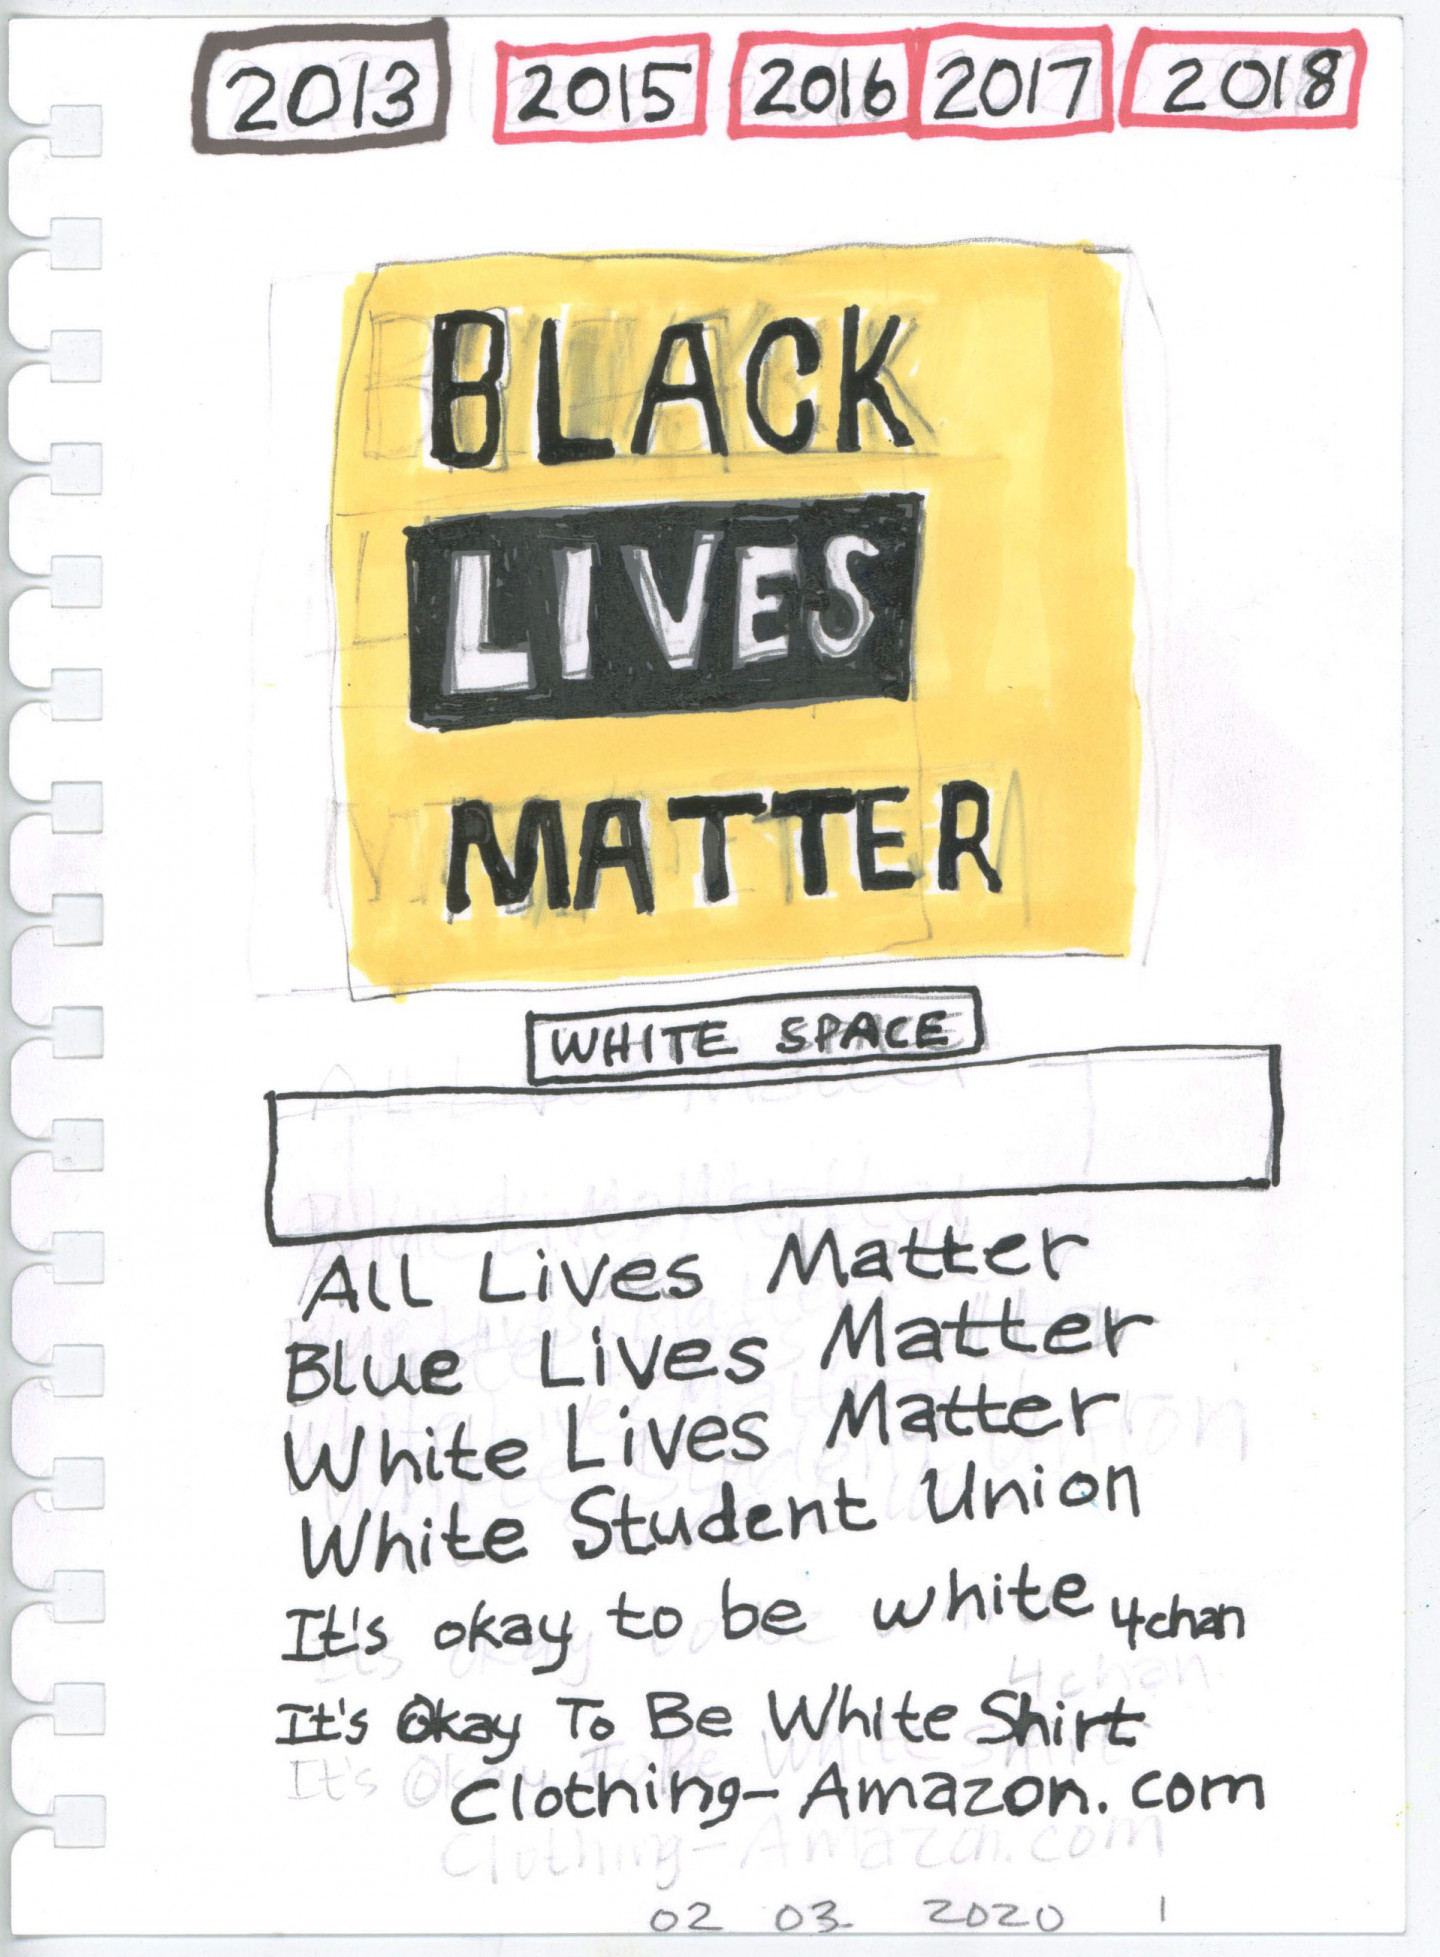 2013 2015 2016 2017 2018
BLACK
LIVES
MATTER
WHITE SPACE
All Lives Matter
Blue Lives Matter
White Lives Matter
White Student Union
It's okay to be white 4chan
It's Okay To Be White Shirt
Clothing-Amazon.com
02 03 2020 1